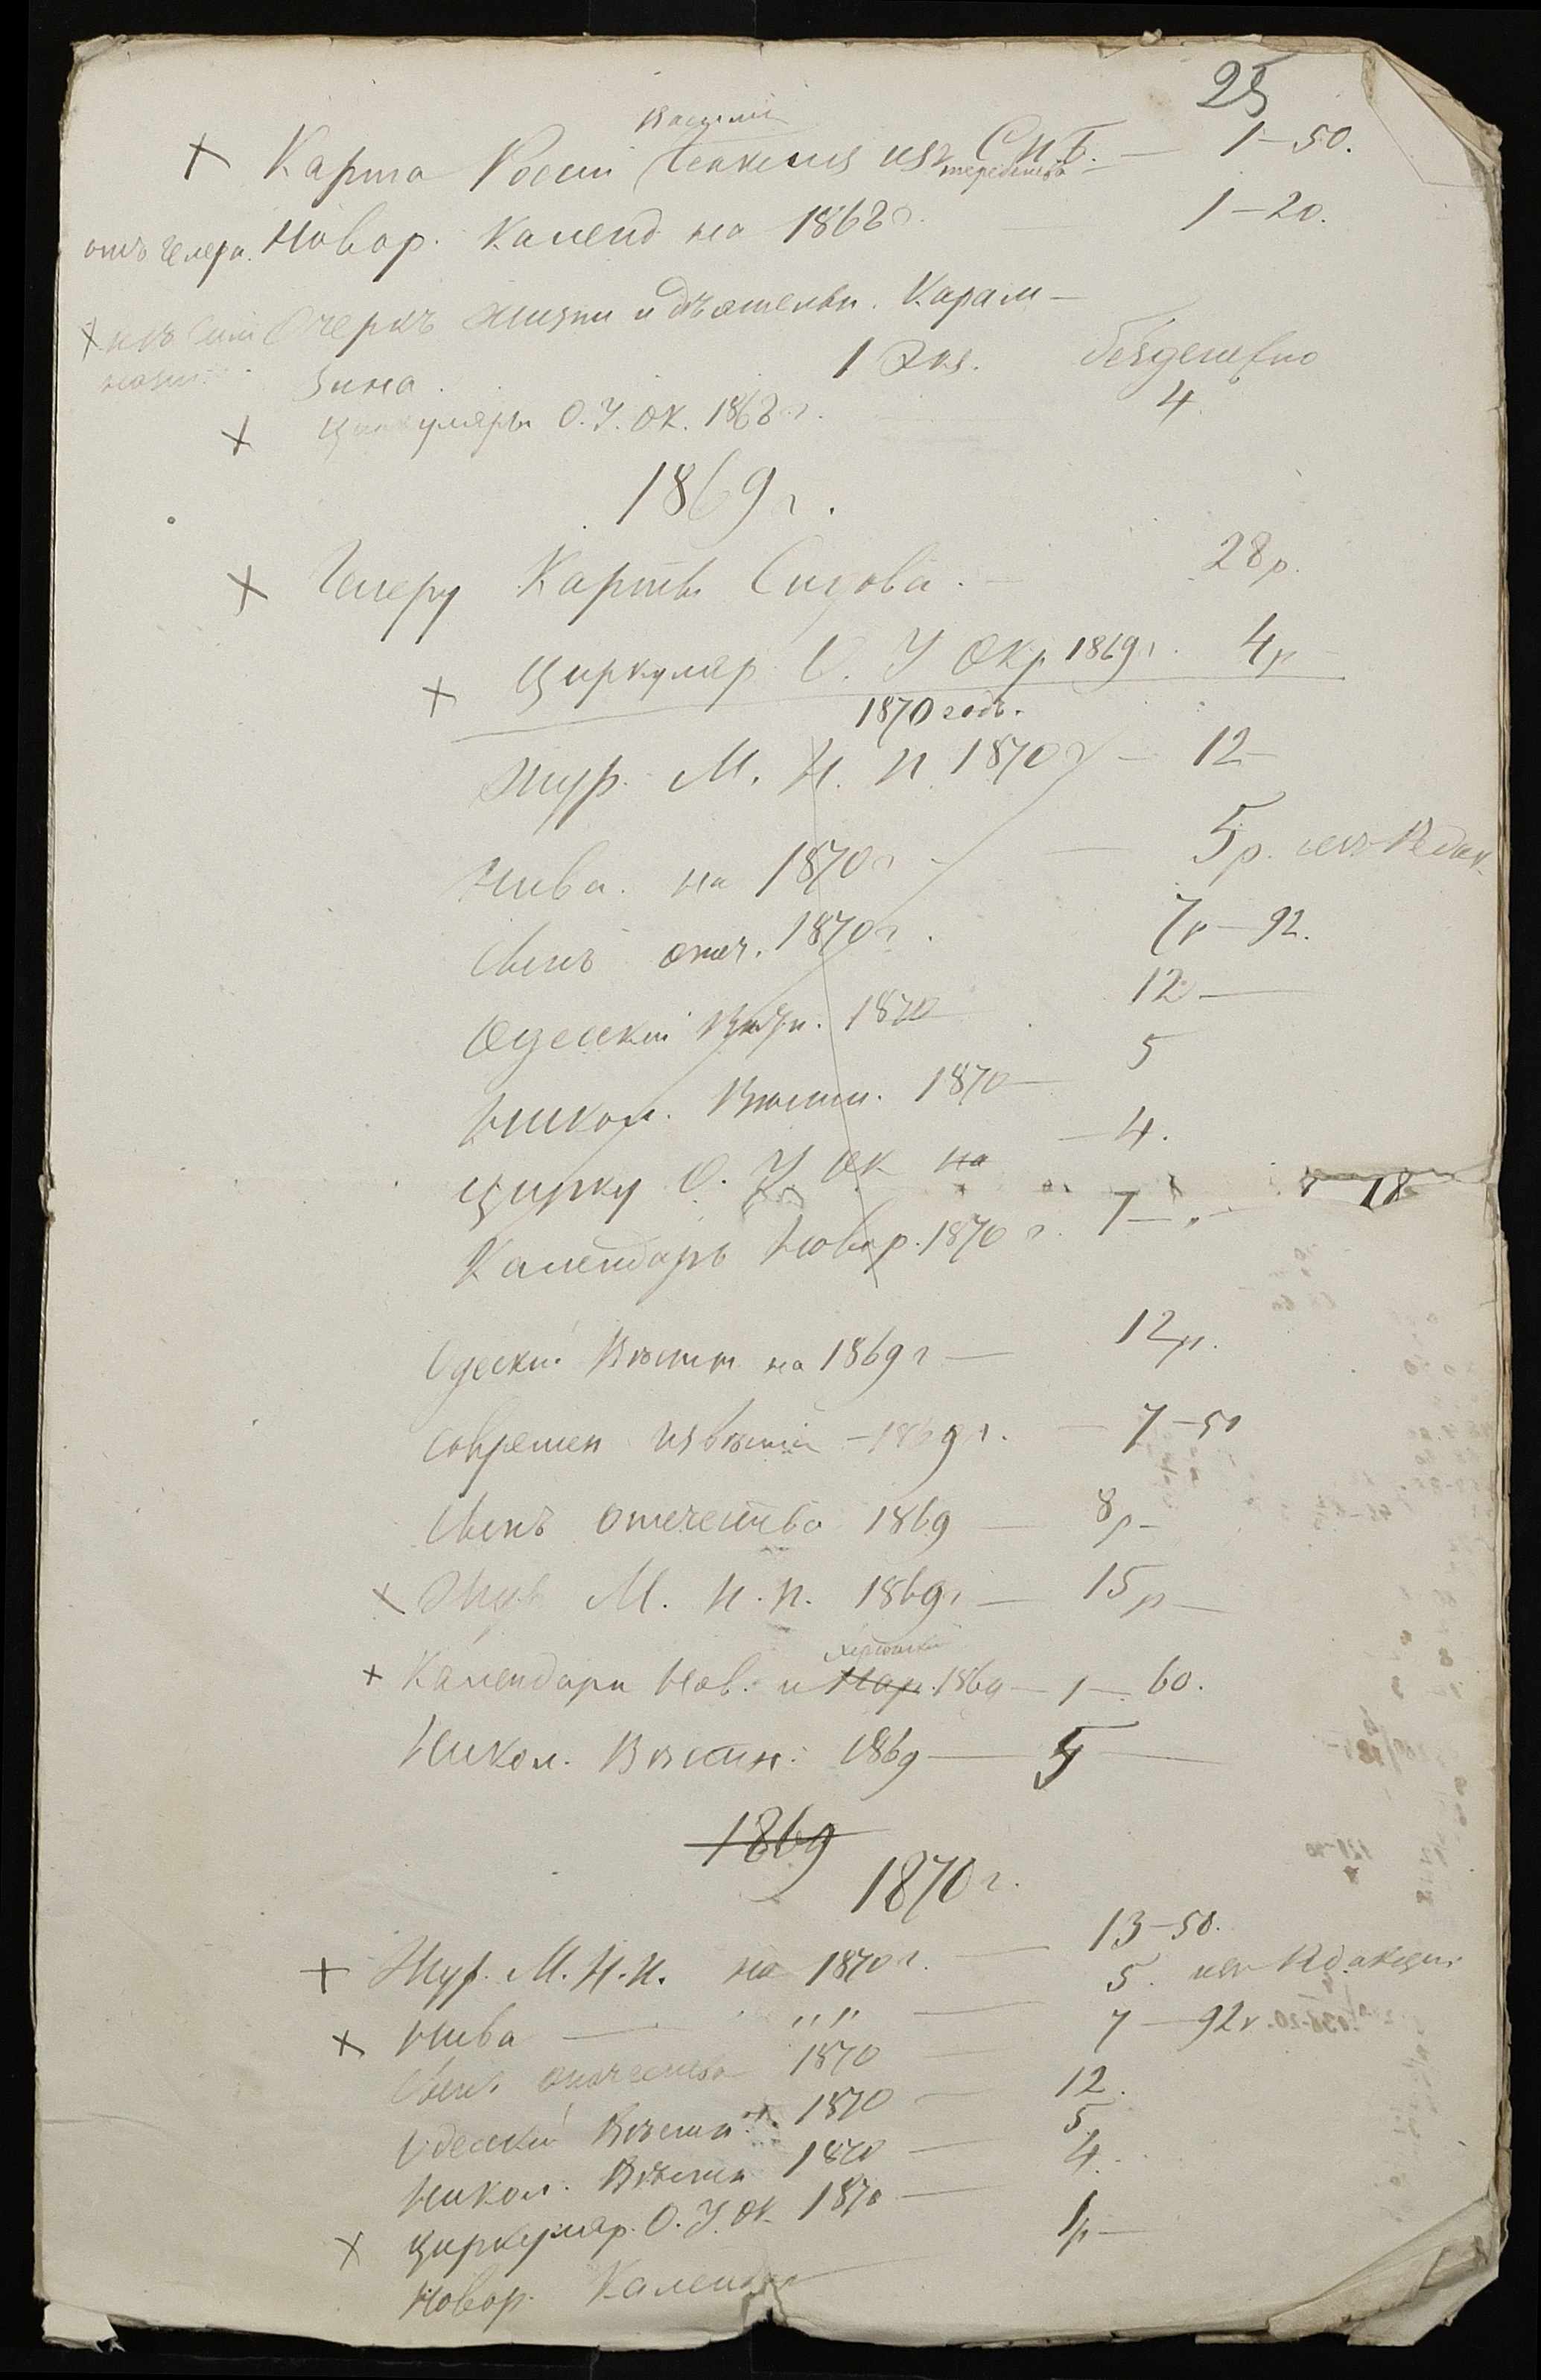 25
+ Карта Росси изъ Спб. — 1–50.
отъ Гелера. Новор. Календ на 1868 г. 1–20.
+ Очеркъ жизни и дѣятельн. Карам–
зина. 1 Экз. безденежно
+ Циркуляры О. У. Ок. 1868 г. 4
1869 г.
+ Гелеру Карты Сидова. — 28 р.
+ Циркуляр О. У Окр 1869 г. 4 р
1870 годъ.
Жур. М. Н. П. 1870 г — 12 —
Нива. на 1870 г — 5 р. изъ Редак.
Сынъ отеч. 1870 г. 7 р – 92.
Одесскій Вѣстн. 1870 12 —
Никол. Вѣстн. 1870 — 5
Цирку О. У. Ок на — 4.
18
Календарь Новор. 1870 г. 1 —
Одескій Вѣстн на 1869 г — 12 р.
Современ извѣстія – 1869 г. — 7 – 50
Сынъ отечества 1869 — 8 р –
+ Жур М. Н. П. 1869 г — 15 р —
+ Календари Нов. и Херсонскій 1869 — 1 — 60.
Никол. Вѣстн. 1869 — 5 —
1869
1870 г.
+ Жур. М. Н. П. на 1870 г. — 13 – 50.
+ Нива — " " — 5. изъ Редакціи
Сынъ отечества 1870 — 7 — 92 к
Одесскій Вѣстн. 1870 — 12.
Никол. Вѣстн 1870 — 5.
+ Циркуляр. О. У. Ок 1870 — 4.
Новор. Календ 1 р —